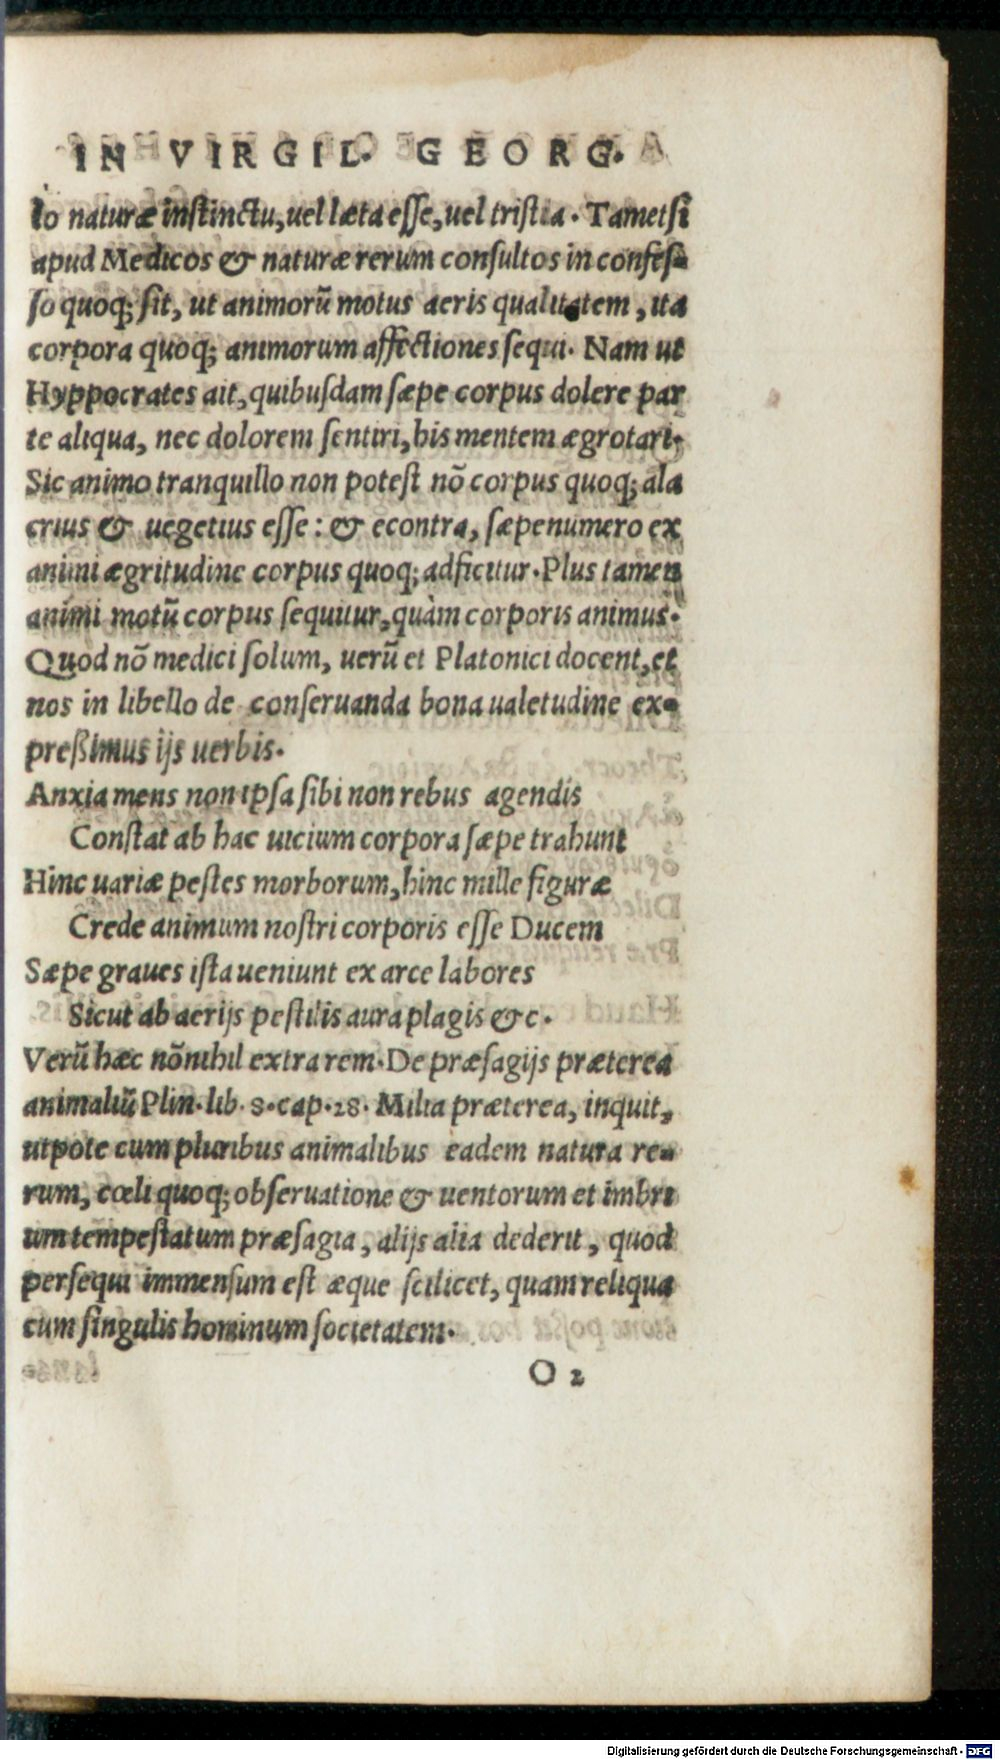 IN VIRGIL. GEORG.
lo naturæ instinctu, uel læta esse, uel tristia. Tametsi
apud Medicos & naturæ rerum consultos in confes-
so quoq; sit, ut animorũ motus aeris qualitatem, ita
corpora quoq; animorum affectiones sequi. Nam ut
Hyppocrates ait, quibusdam sæpe corpus dolere par
te aliqua, nec dolorem sentiri, his mentem ægrotari.
Sic animo tranquillo non potest nõ corpus quoq; ala
crius & uegetius esse: & econtra, sæpenumero ex
animi ægritudine corpus quoq; adficitur. Plus tamen
animi motũ corpus sequitur, quàm corporis animus.
Quod nõ medici solum, uerũ et Platonici docent, et
nos in libello de conseruanda bona ualetudine ex-
preßimus ijs uerbis.
Anxia mens non ipsa sibi non rebus agendis
Constat ab hac uicium corpora sæpe trahunt
Hinc uariæ pestes morborum, hinc mille figuræ
Crede animum nostri corporis esse Ducem
Sæpe graues ista ueniunt ex arce labores
Sicut ab aerijs pestilis aura plagis &c.
Verũ hæc nõnihil extra rem. De præsagijs præterea
animaliũ Plin. lib. 8. cap. 28. Milia præterea, inquit,
utpote cum pluribus animalibus eadem natura re-
rum, cœli quoq; obseruatione & uentorum et imbri
um tempestatum præsagia, alijs alia dederit, quod
persequi immensum est æque scilicet, quam reliqua
cum singulis hominum societatem.
O 2
Digitalisierung gefördert durch die Deutsche Forschungsgemeinschaft - DFG